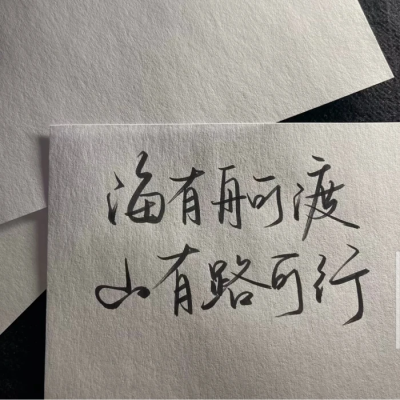 海有舟可渡
山有路可行